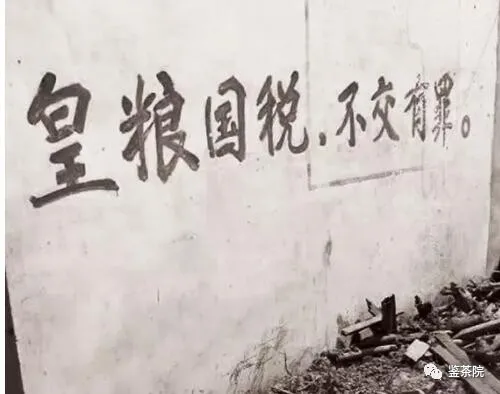 皇粮国税，不交有罪。
鉴茶院